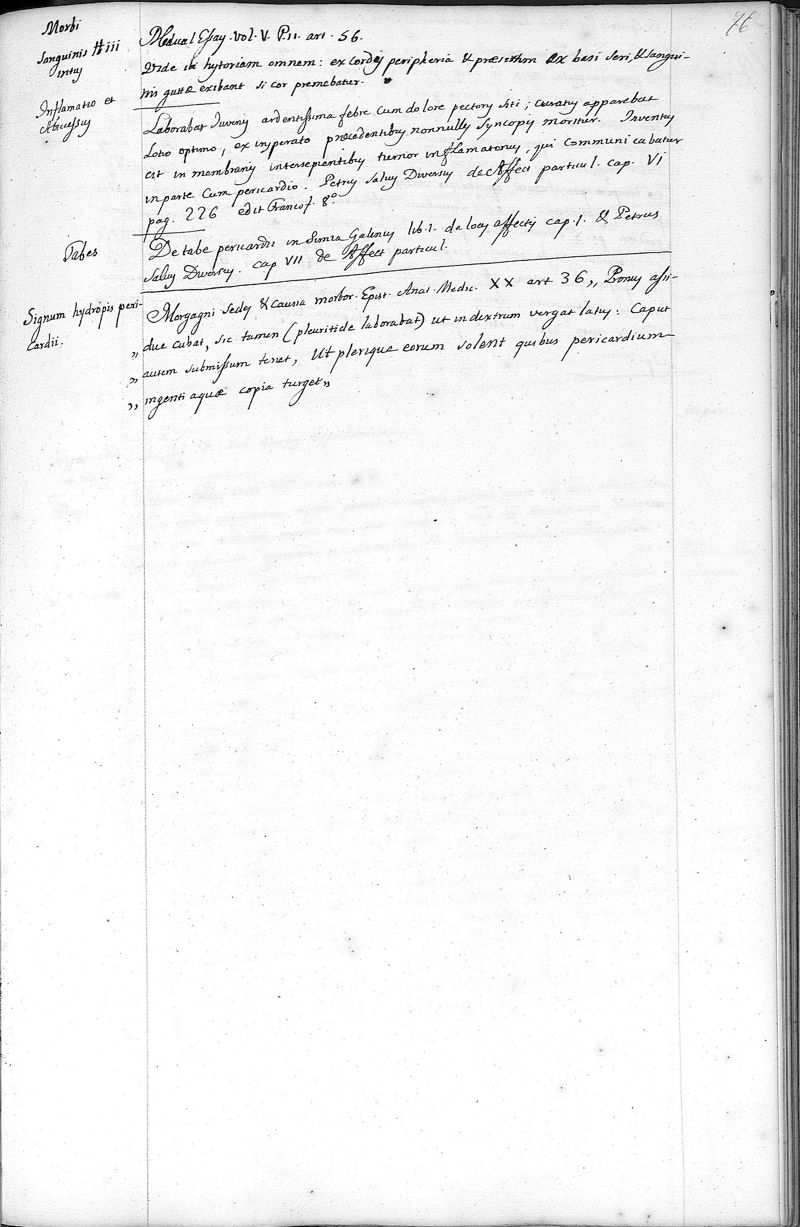 76
Morbi
Sanguinis #iii
intus
Medical Essay. Vol. V. P. 11. art. 56.
Vide ia hystoriam omnem: ex cordis peripheria & præsertim ex basi seri, & sangui-
nis guttæ exibant si cor premebatur.
Inflamatio et
Abscessus
Laborabat Juvenis ardentissima febre cum dolore pectoris siti; curatus apparebat
Lotio optimo, ex insperato præcedentibus nonnullis syncopis moritur. Inventus
est in membranis intersepientibus tumor inflamatorius, qui communi cubatur
in parte cum pericardio. Petrus Salius Diversus de Affect particul. cap. VI
pag. 226 edit Francof. 8º
Tabes
De tabe pericardii in Simia Galenus lib. 1. de locis affectis cap. 1. & Petrus
Salius Diversus. cap VII de Affect particul.
Signum hydropis peri-
cardii.
Morgagni Sedes & causis morbor. Epist. Anat. Medic. XX art. 36 „ Pronus assi-
„ due cubat, sic tamen (pleuritide laborabat) ut in dextrum vergat latus: Caput
„ autem submissum tenet, Ut plerique eorum solent quibus pericardium
„ ingenti aquæ copia turget „